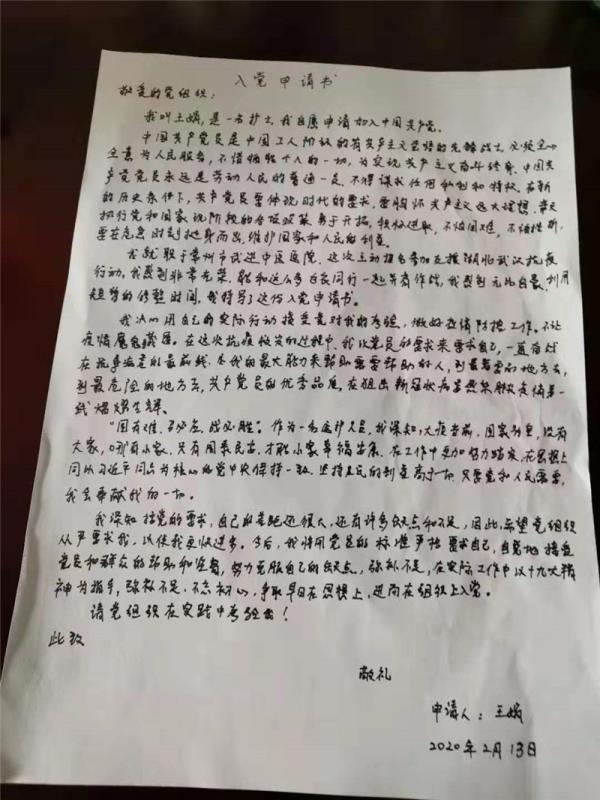 入党申请书
敬爱的党组织：
我叫王娟，是一名护士，我自愿申请加入中国共产党。
中国共产党员是中国工人阶级的有共产主义觉悟的先锋战士，必须全心
全意为人民服务，不惜牺牲个人的一切，为实现共产主义奋斗终身。中国共
产党党员永远是劳动人民的普通一员，不得谋求任何私利和特权。在新
的历史条件下，共产党员要体现时代的要求，要胸怀共产主义远大理想，带头
执行党和国家现阶段的各项政策，勇于开拓，积极进取，不怕困难，不怕牺牲，
要在危急时刻挺身而出，维护国家和人民的利益。
我就职于常州市武进中医医院，这次主动报名参加支援湖北武汉抗疫
行动，我感到非常光荣，能和这么多白衣同行一起并肩作战，我感到无比自豪，利用
短暂的休整时间，我特写了这份入党申请书。
我决心用自己的实际行动接受党对我的考验，做好疫情防控工作。不让
疫情魔鬼藏匿。在这次抗疫救灾的过程中，我以党员的要求来要求自己，一直奋战
在抗争病毒的最前线，尽我的最大能力来帮助需要帮助的人，到最需要的地方去，
到最危险的地方去，共产党员的优秀品质，在阻击新冠状病毒感染肺炎疫情第一
线熠熠生辉。
“国有难，召必应，战必胜”。作为一名医护人员，我深知，大疫当前，国家为重，没有
大家，哪有小家，只有国泰民安，才能小家幸福安康，在工作中更加努力踏实，在思想上
同以习近平同志为核心的党中央保持一致，坚持人民的利益高于一切，只要党和人民需要，
我会奉献我的一切。
我深知按党的要求，自己的差距还很大，还有许多缺点和不足，因此，希望党组织
从严要求我，以使我更快进步。今后，我将用党员的标准严格要求自己，自觉地接受
党员和群众的帮助和监督，努力克服自己的缺点，弥补不足，在实际工作中以十九大精
神为指导，弥补不足，不忘初心，争取早日在思想上，进而在组织上入党。
请党组织在实践中考验我！
此致
敬礼
申请人：王娟
2020年2月13日